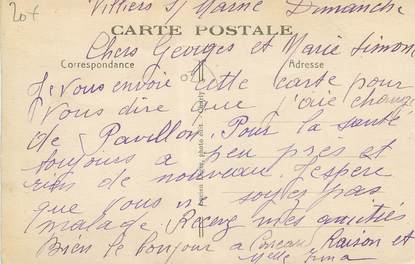 20f
Villiers S/ Marne Dimanche
CARTE POSTALE
Chers Georges et Marie Simone
Correspondance
Adresse
Je vous envoie cette carte pour
vous dire que j'aie changé
de Pavillon. Pour la santé
toujours a peu pres et
rien de nouveau. J'espere
que vous n soyez pas
malade. Recevez mes amitiés
Bien le bonjour a Raison et
Melle